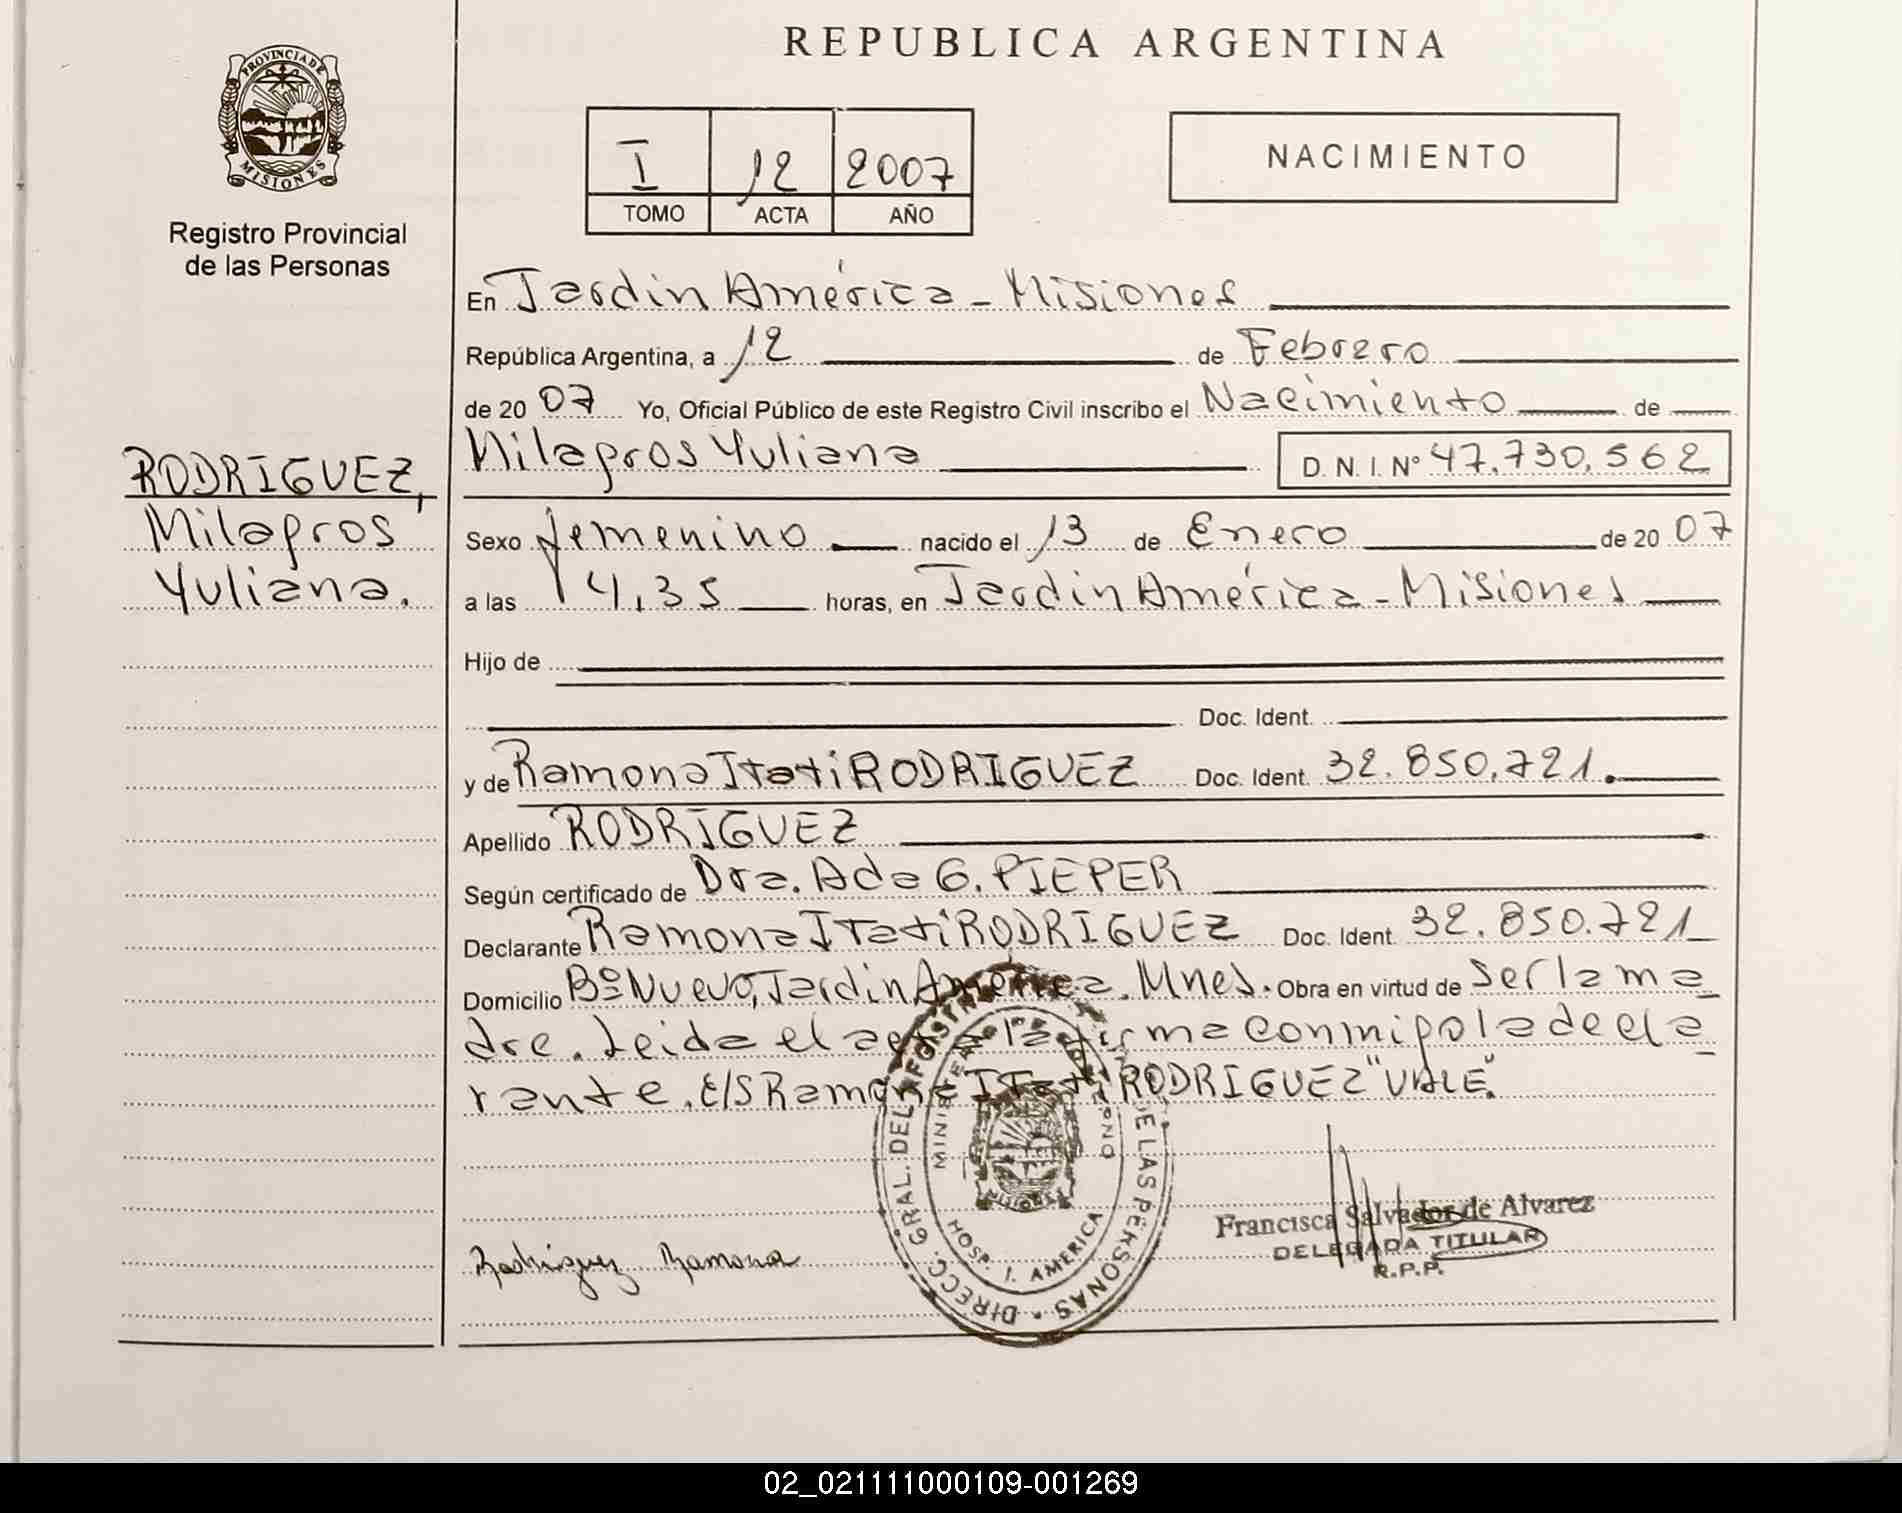 REPUBLICA ARGENTINA
PROVINCIA DE
MISIONES
Registro Provincial
de las Personas
I 12 2007
TOMO ACTA AÑO
NACIMIENTO
En Jardin América - Misiones
República Argentina, a 12 de Febrero
de 20 07 Yo, Oficial Público de este Registro Civil inscribo el Nacimiento de
RODRIGUEZ,
Milagros
Yuliana.
Milagros Yuliana D. N. I. Nº 47.730.562
Sexo femenino nacido el 13 de Enero de 20 07
a las 14,35 horas, en Jardin América - Misiones
Hijo de
Doc. Ident.
y de Ramona Itati RODRIGUEZ Doc. Ident. 32.850.721.
Apellido RODRIGUEZ
Según certificado de Dra. Ada G. PIEPER
Declarante Ramona Itati RODRIGUEZ Doc. Ident. 32.850.721
Domicilio Bº Nuevo, Jardin América. Mnes. Obra en virtud de ser la ma
dre. Leida el acta la firma conmigo la decla
rante. E/S Ramona Itati RODRIGUEZ "VALE".
DIRECC. GRAL. DEL REGISTRO DE LAS PERSONAS
HOSP. J. AMERICA
MISIONES
Rodriguez Ramona
Francisca Salvador de Alvarez
DELEGADA TITULAR
R.P.P.
02_021111000109-001269